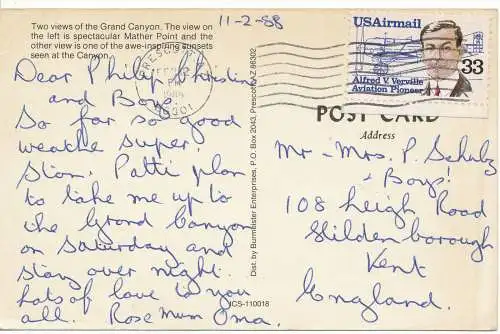 Two views of the Grand Canyon. The view on
the left is spectacular Mather Point and the
other view is one of the awe-inspiring sunsets
seen at the Canyon.
11-2-88
Dear Philip, Christine
and Boys.
So far so good
weathe super.
Stan. Patti plan
to take me up to
the Grand Canyon
on Saturday and
stay over night.
Lots of love to you
all. Rose Mum Oma.
ICS-110018
Dist. by Burmeister Enterprises, P.O. Box 2043, Prescott, AZ 86302
PRESCOTT
PM
86301
USAirmail
33
Alfred V. Verville
Aviation Pioneer
POST CARD
Address
Mr - Mrs. P. Schulz
- Boys!
108 Leigh Road
Hildenborough
Kent
England.